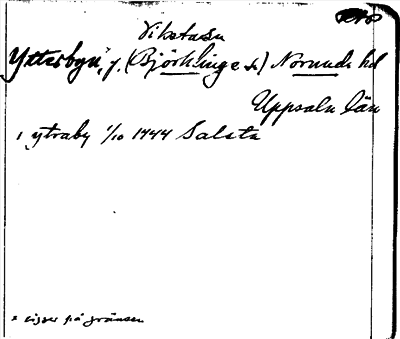 Vikstasn
Ytterbyn, j. (Björklinge sn) Norunda hd
Uppsala län
i ytraby 1/10 1444 Salsta
ligger på gränsen